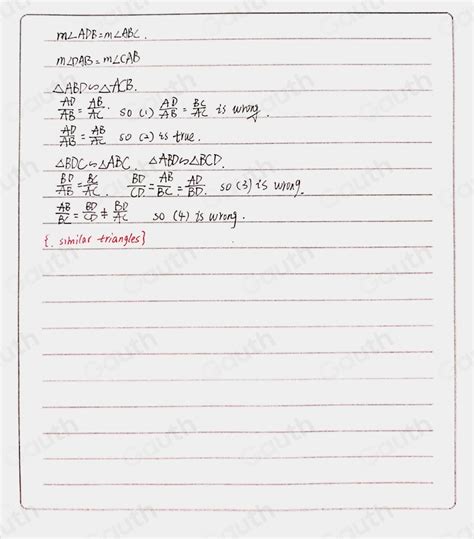 m∠ADB=m∠ABC.
m∠DAB=m∠CAB
△ABD∽△ACB.
AD/AB = AB/AC. so (1) AD/AB = BC/AC is wrong.
AD/AB = AB/AC so (2) is true.
△BDC∽△ABC. △ABD∽△BCD.
BD/AB = BC/AC. BD/CD = AB/BC = AD/BD. so (3) is wrong.
AB/BC = BD/CD ≠ BD/AC so (4) is wrong.
{. similar triangles}
Gauth